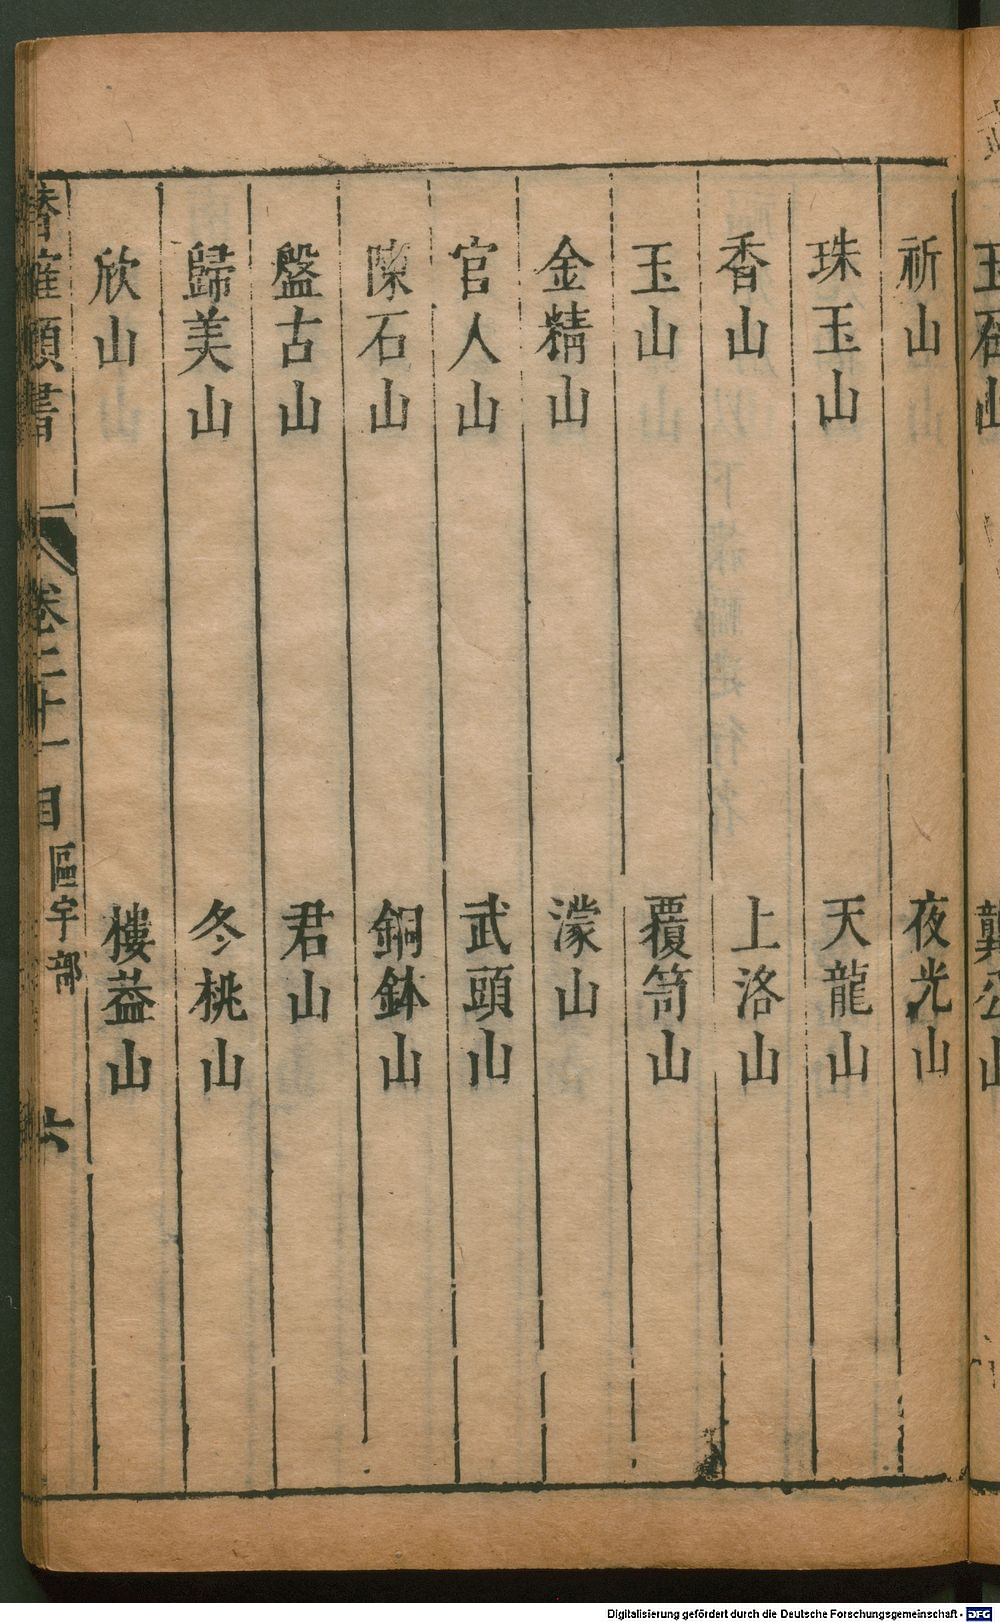 祈山　夜光山
珠玉山　天龍山
香山　上洛山
玉山　覆笥山
金精山　濛山
官人山　武頭山
陳石山　銅鉢山
盤古山　君山
歸美山　冬桃山
欣山　樓益山
潛確類書　卷二十一目　區宇部　六
Digitalisierung gefördert durch die Deutsche Forschungsgemeinschaft - DFG